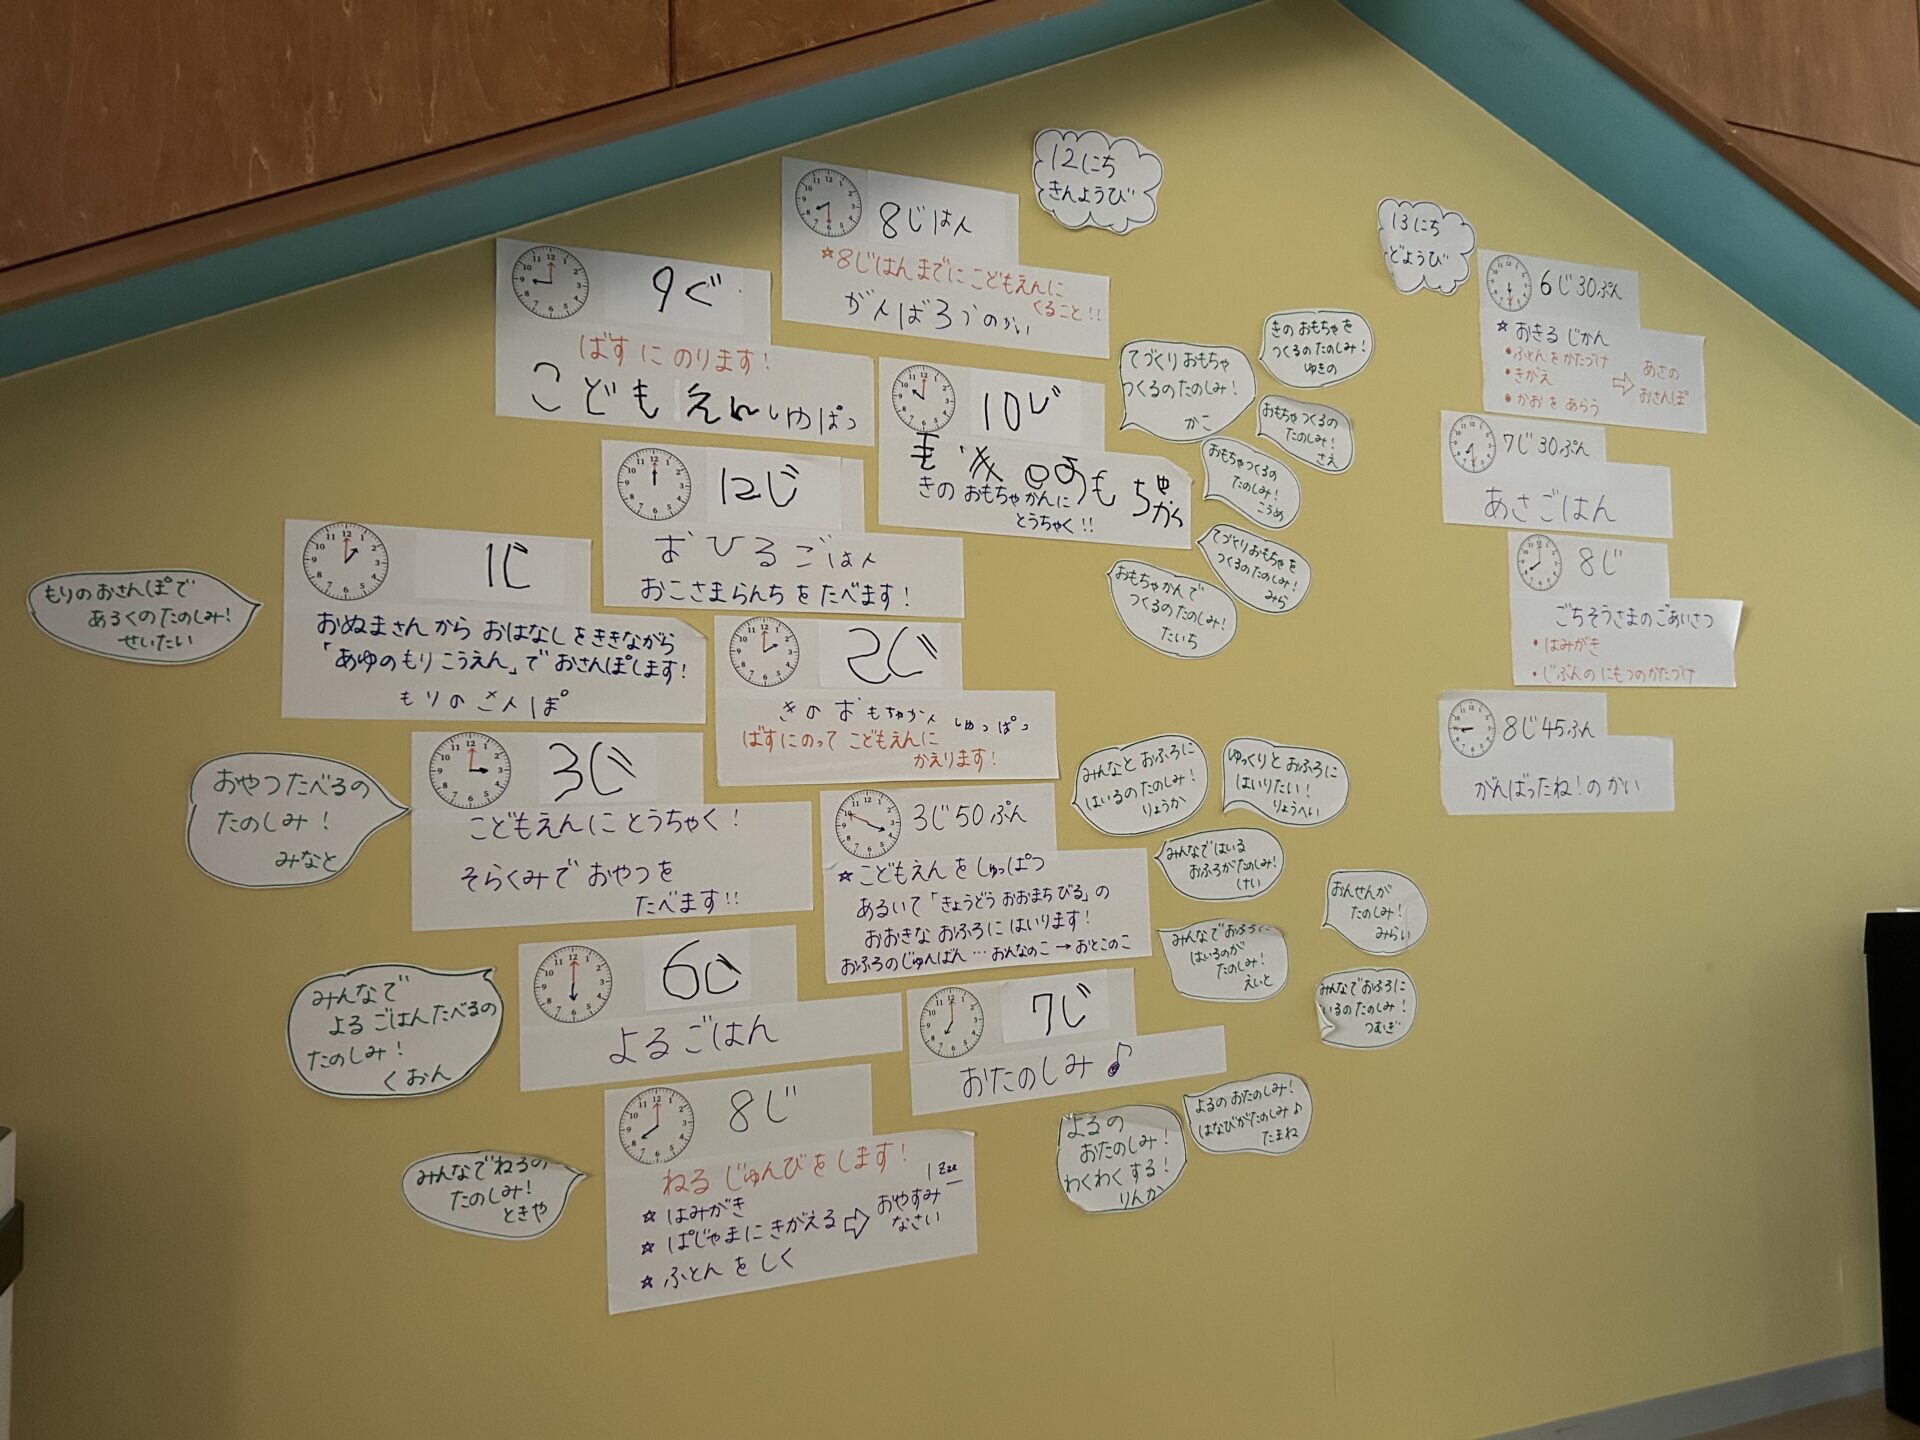 12にち
きんようび
8じはん
☆8じはんまでに こどもえんに
くること!!
がんばろうのかい
9じ
ばすにのります!
こどもえんしゅぱつ
10じ
きの おもちゃかんに
とうちゃく!!
てづくりおもちゃ
つくるのたのしみ!
かこ
きのおもちゃを
つくるのたのしみ!
ゆきの
おもちゃつくるの
たのしみ!
さえ
おもちゃつくるの
たのしみ!
こうめ
てづくりおもちゃを
つくるのたのしみ!
みら
おもちゃかんで
つくるのたのしみ!
たいち
12じ
おひるごはん
おこさまらんちをたべます!
1じ
おぬまさんから おはなしをききながら
「あゆのもりこうえん」で おさんぽします!
もりのさんぽ
もりのおさんぽで
あるくのたのしみ!
せいたい
2じ
きのおもちゃかん しゅっぱつ
ばすにのって こどもえんに
かえります!
3じ
こどもえんに とうちゃく!
そらくみで おやつを
たべます!!
おやつたべるの
たのしみ!
みなと
3じ50ぷん
☆こどもえんを しゅっぱつ
あるいて「きょうどう おおまちびる」の
おおきな おふろに はいります!
おふろのじゅんばん…おんなのこ→おとこのこ
みんなとおふろに
はいるのたのしみ!
りょうか
ゆっくりとおふろに
はいりたい!
りょうへい
みんなではいる
おふろがたのしみ!
けい
おんせんが
たのしみ!
みらい
みんなでおふろに
はいるのが
たのしみ!
えいと
みんなでおふろに
いるのたのしみ!
つむぎ
6じ
よるごはん
みんなで
よるごはんたべるの
たのしみ!
くおん
7じ
おたのしみ♪
よるの
おたのしみ!
わくわくする!
りんか
よるのおたのしみ!
はなびがたのしみ♪
たまね
8じ
ねる じゅんびをします!
☆ はみがき
☆ ぱじゃまにきがえる ⇨ おやすみ
なさい
☆ ふとんをしく
みんなでねるの
たのしみ!
ときや
13にち
どようび
6じ30ぷん
☆ おきるじかん
・ふとんをかたづけ
・きがえ
・かおをあらう
⇨ あさの
おさんぽ
7じ30ぷん
あさごはん
8じ
ごちそうさまのごあいさつ
・はみがき
・じぶんのにもつのかたづけ
8じ45ふん
がんばったね!のかい